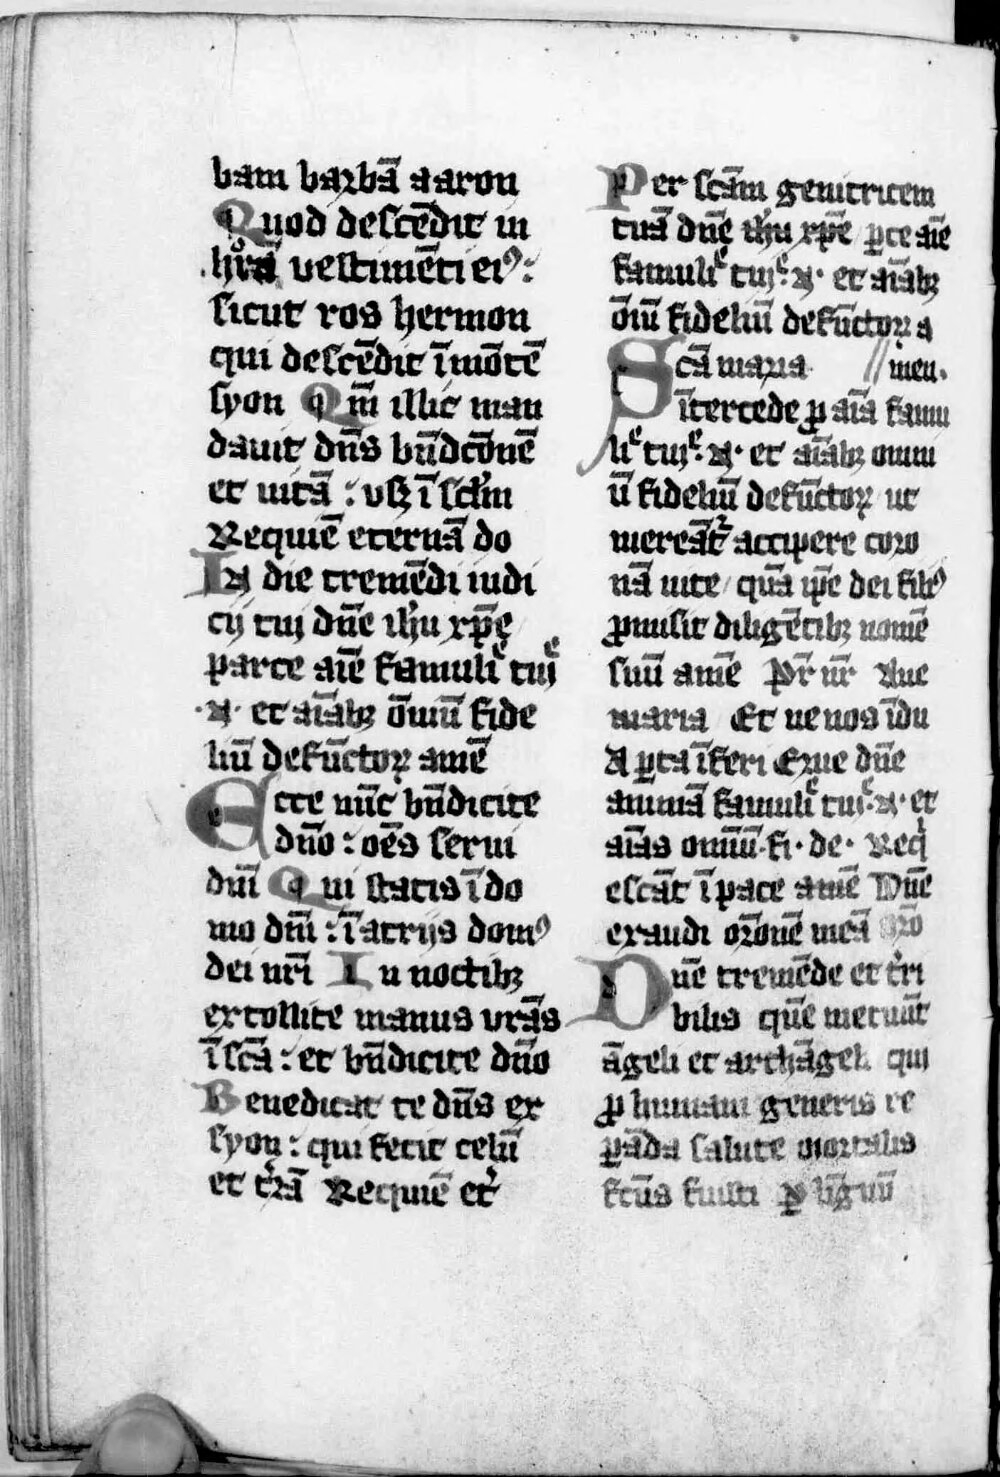 bam barbā aaron
Quod descēdit in
horā vestimēti eiꝰ:
sicut ros hermon
qui descēdit ī mōtē
syon Qm̄ illic man
davit dn̄s bn̄dcōnē
et uitā : vsqꝫ ī scl̄m
Requiē eternā do
In die tremēdi iudi
cij tui dn̄e ih̄u xp̄e
parce aīe famuli tui
.N. et aīabꝫ ōniū fide
liū defūctoꝝ amē
Ecce nūc bn̄dicite
dn̄o : oēs serui
dn̄i Qui statis ī do
mo dn̄i : ī atrijs domꝰ
dei nr̄i In noctibꝫ
extollite manus vrās
ī scā : et bn̄dicite dn̄o
Benedicat te dn̄s ex
syon : qui fecit celū
et t̄rā Requiē et̄
Per scām genitricem
tuā dn̄e ih̄u xp̄e ꝑce aīe
famuli tui .N. et aīabꝫ
ōiū fideliū defūctoꝝ a
Scā maria // men.
ītercede ꝓ aīa famu
li tui .N. et aīabꝫ omni
ū fideliū defūctoꝝ ut
mereāt᷑ accipere coro
nā uite quā ip̄e dei filiꝰ
ꝓmisit diligētibꝫ nomē
suū amē Pr̄ nr̄ Aue
maria Et ne nos īdu
A ꝑta īferi Erue dn̄e
animā famuli tui .N. et
aīas omniū . fi . de . Req
escāt ī pace amē Dn̄e
exaudi or̄onē meā or̄o
Dn̄e tremēde et t̄ri
bilis quē metuūt
āgeli et archāgeli qui
ꝓ humani generis re
ꝑāda salute mortalis
fc̄us fuisti ꝑ lignū